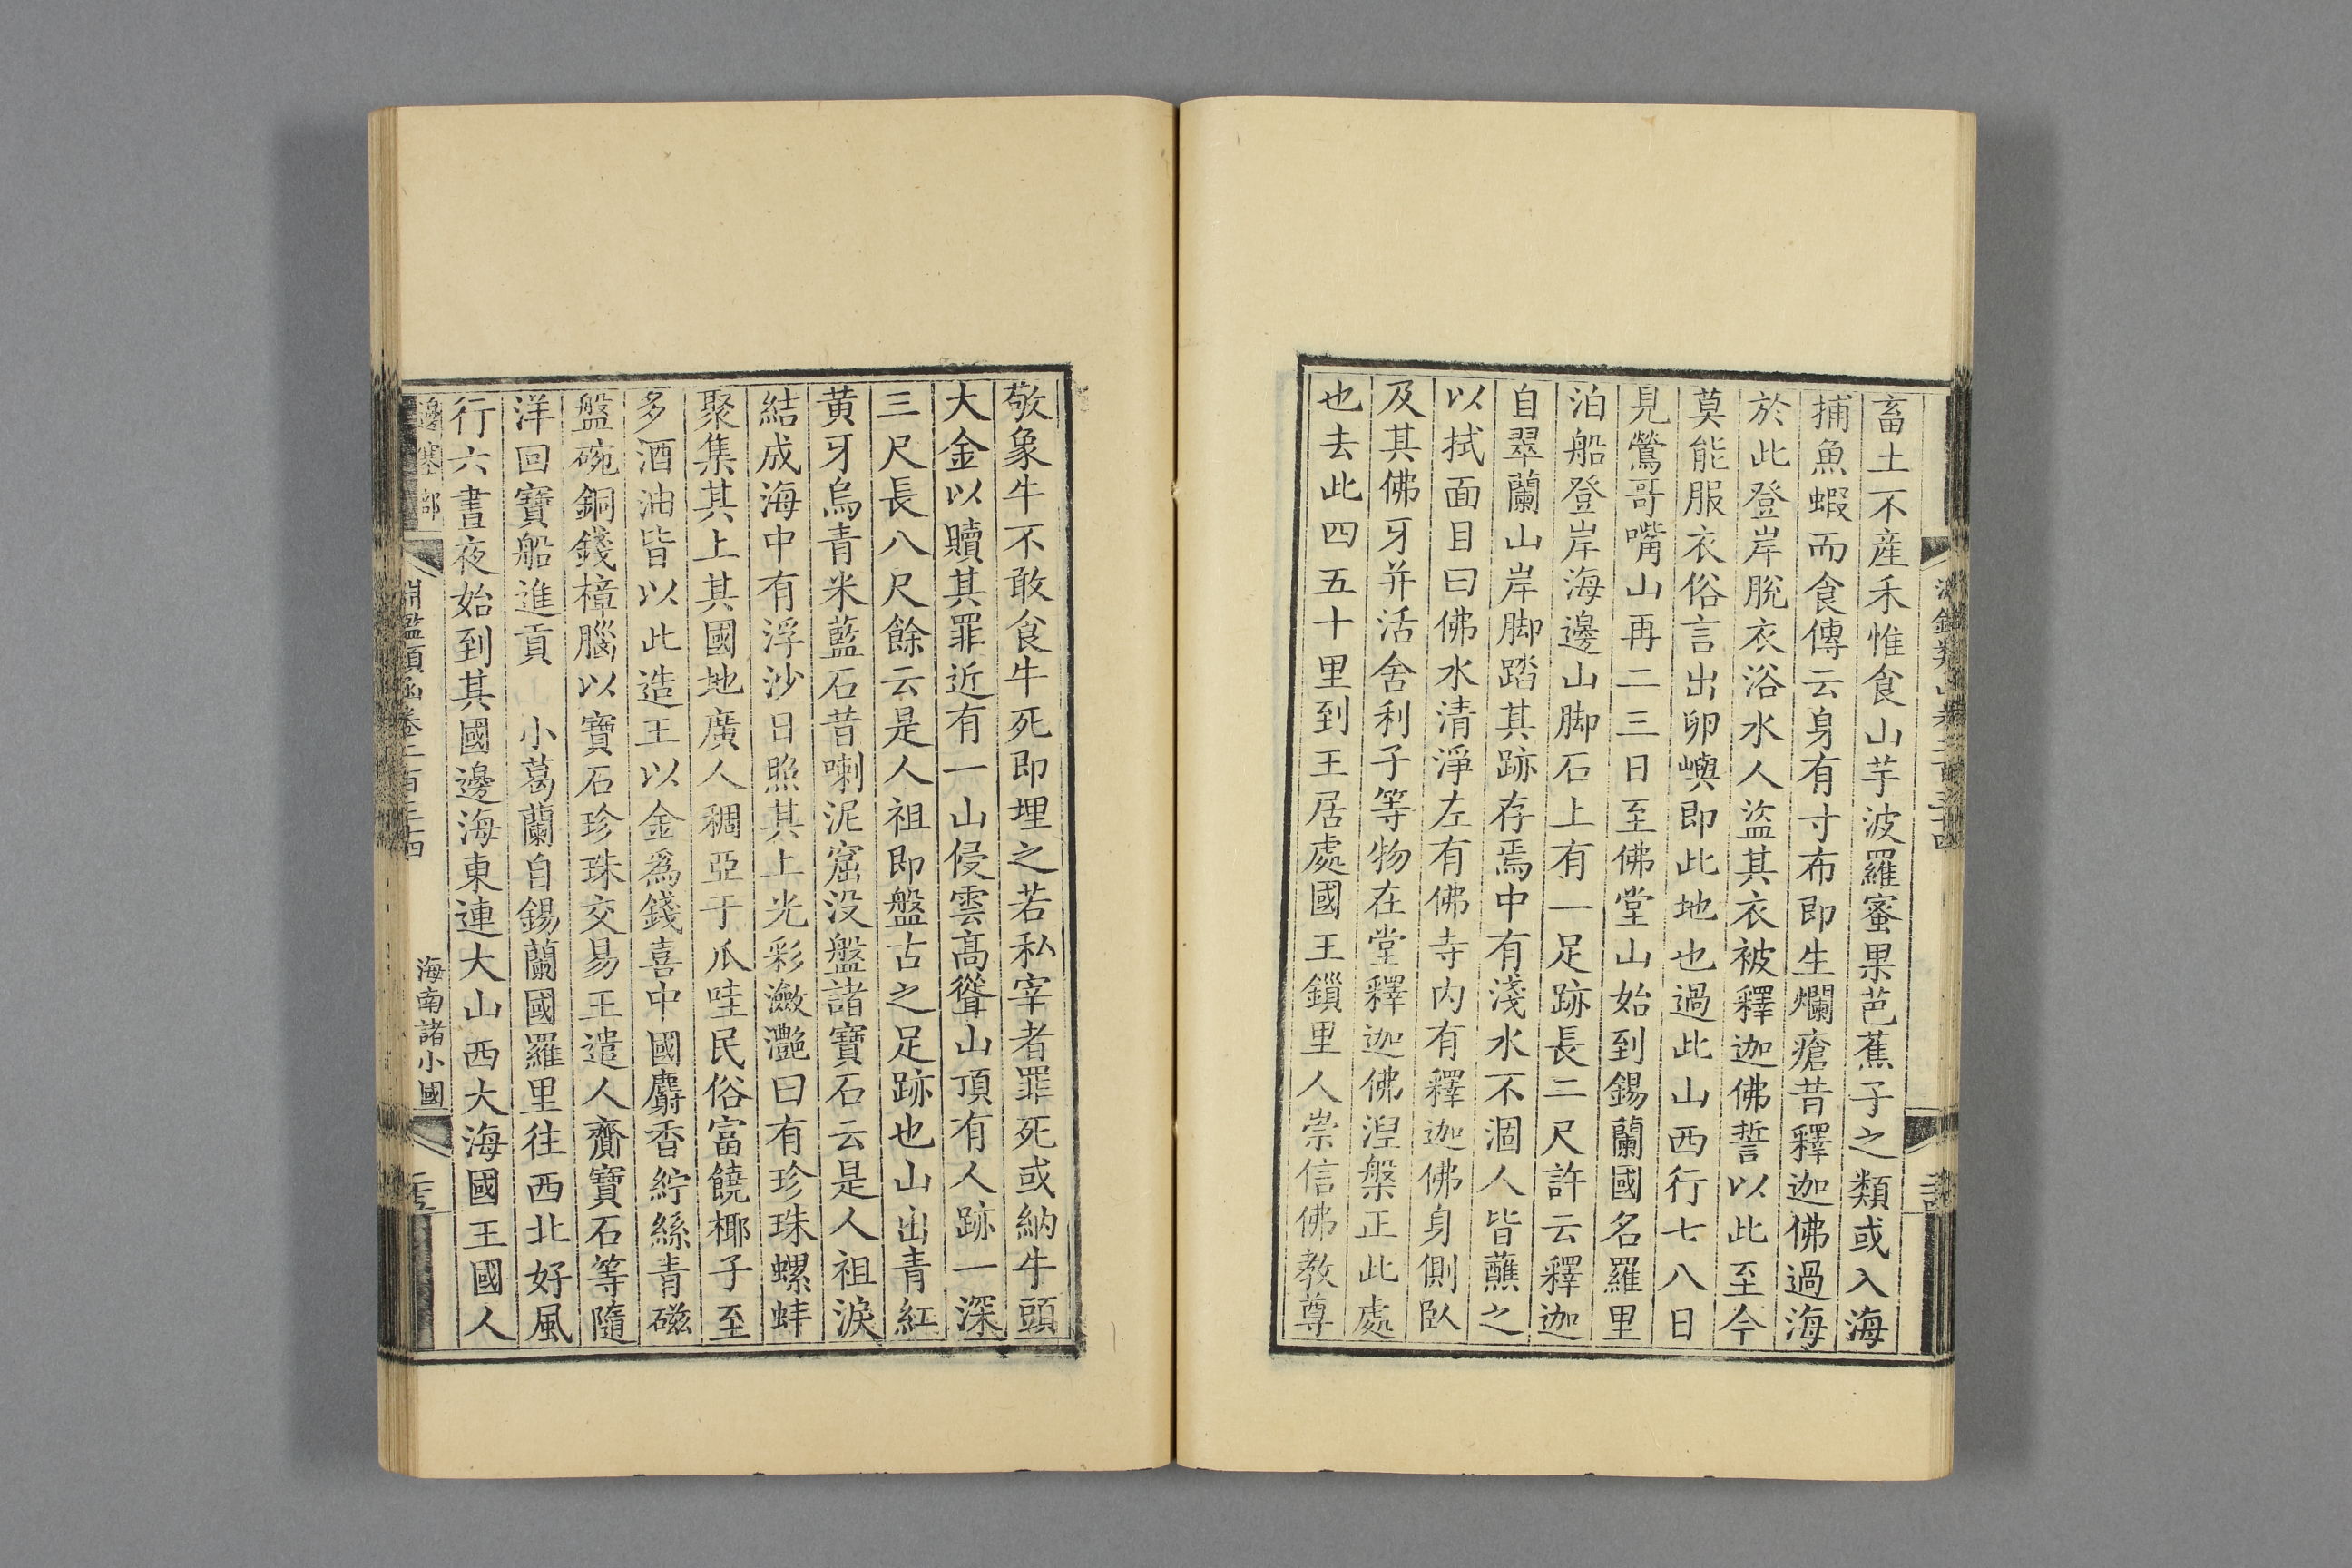 畜土不產禾惟食山芋波羅蜜果芭蕉子之類或入海
捕魚蝦而食傳云身有寸布即生爛瘡昔釋迦佛過海
於此登岸脫衣浴水人盜其衣被釋迦佛誓以此至今
莫能服衣俗言出卵嶼即此地也過此山西行七八日
見鶯哥嘴山再二三日至佛堂山始到錫蘭國名羅里
泊船登岸海邊山脚石上有一足跡長二尺許云釋迦
自翠蘭山岸脚踏其跡存焉中有淺水不涸人皆蘸之
以拭面目曰佛水清淨左有佛寺内有釋迦佛身側臥
及其佛牙并活舍利子等物在堂釋迦佛湼槃正此處
也去此四五十里到王居處國王鎻里人崇信佛教尊
敬象牛不敢食牛死即埋之若私宰者罪死或納牛頭
大金以贖其罪近有一山侵雲髙聳山頂有人跡一深
三尺長八尺餘云是人祖即盤古之足跡也山出青紅
黄牙烏青米藍石昔喇泥窟没盤諸寶石云是人祖淚
結成海中有浮沙日照其上光彩瀲灧曰有珍珠螺蚌
聚集其上其國地廣人稠亞于爪哇民俗富饒椰子至
多酒油皆以此造王以金爲錢喜中國麝香紵絲青磁
盤碗銅錢樟腦以寶石珍珠交易王遣人齎寶石等隨
洋回寶船進貢　小葛蘭自錫蘭國羅里往西北好風
行六晝夜始到其國邊海東連大山西大海國王國人
邊塞部
淵鑑類函卷二百三十四
海南諸小國